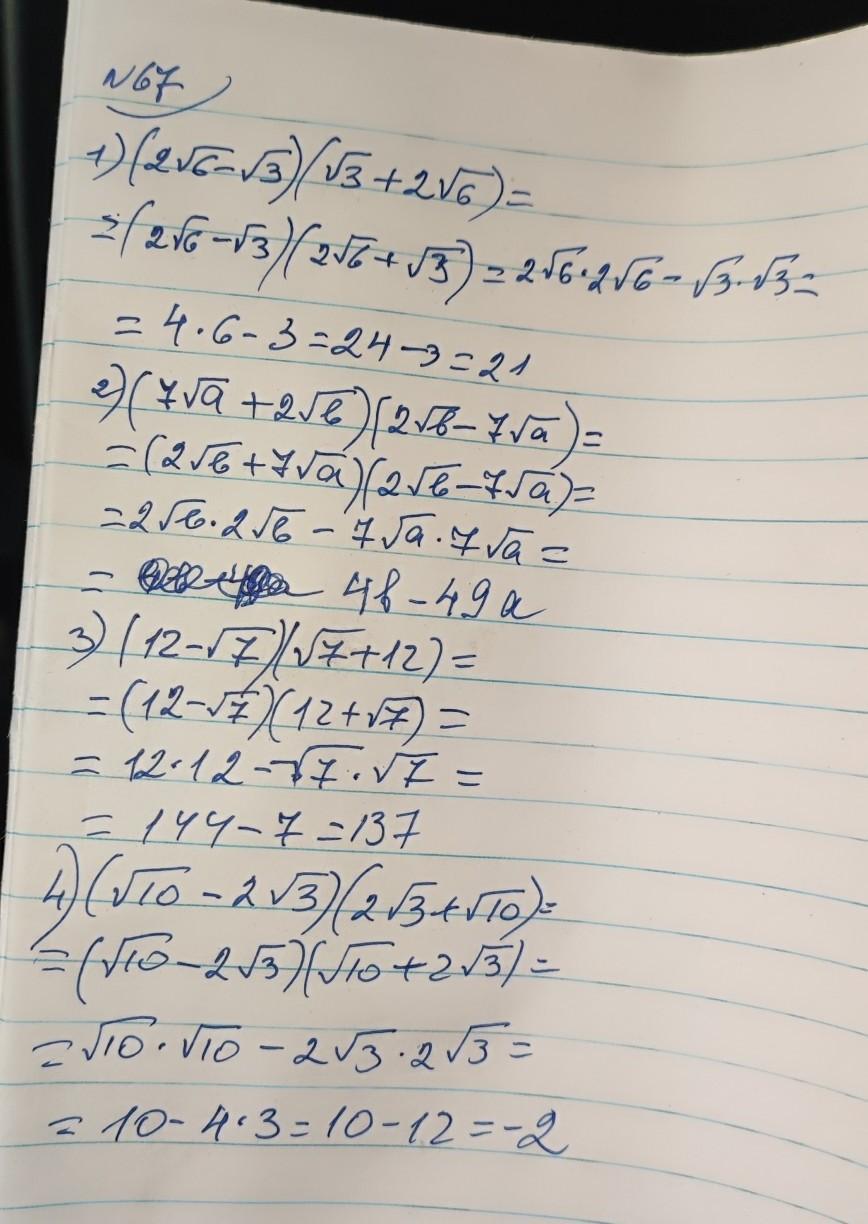 №67
1) (2√6-√3)(√3+2√6)=
=(2√6-√3)(2√6+√3)=2√6·2√6-√3·√3=
=4·6-3=24-3=21
2) (7√a+2√b)(2√b-7√a)=
=(2√b+7√a)(2√b-7√a)=
=2√b·2√b-7√a·7√a=
= 4b-49a
3) (12-√7)(√7+12)=
=(12-√7)(12+√7)=
=12·12-√7·√7=
=144-7=137
4) (√10-2√3)(2√3+√10)=
=(√10-2√3)(√10+2√3)=
=√10·√10-2√3·2√3=
=10-4·3=10-12=-2